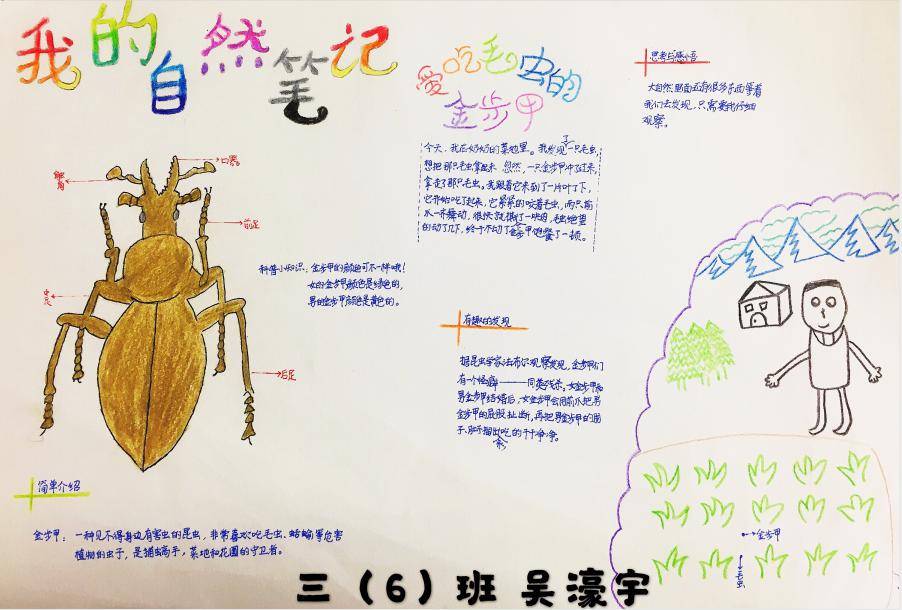 我的自然笔记
爱吃毛虫的
金步甲
今天,我在奶奶的菜地里。我发现了一只毛虫,
想把那只毛虫拿起来,忽然,一只金步甲冲了过来,
拿走了那只毛虫。我跟着它来到了一片叶子下,
它开始吃了起来,它紧紧的咬着毛虫,两只前
爪一齐舞动,很快就撕了一块肉,毛虫绝望
的动了几下,终于不动了。金步甲饱餐了一顿。
思考与感悟
大自然里面还有很多东西等着
我们去发现,只需要我们仔细
观察。
口器
触角
前足
中足
后足
科普小知识:金步甲的颜色可不一样哦!
女的金步甲颜色是绿色的,
男的金步甲颜色是黄色的。
有趣的发现
据昆虫学家法布尔观察发现,金步甲们
有一个怪癖——同类残杀,女金步甲和
男金步甲结婚后,女金步甲会用前爪把男
金步甲的屁股扯断,再把男金步甲的肚
子、肝
吃的干干净净。
简单介绍
金步甲:一种见不得身边有害虫的昆虫,非常喜欢吃毛虫、蛞蝓等危害
植物的虫子,是捕虫高手,菜地和花园的守卫者。
金步甲
毛虫
三(6)班 吴濠宇